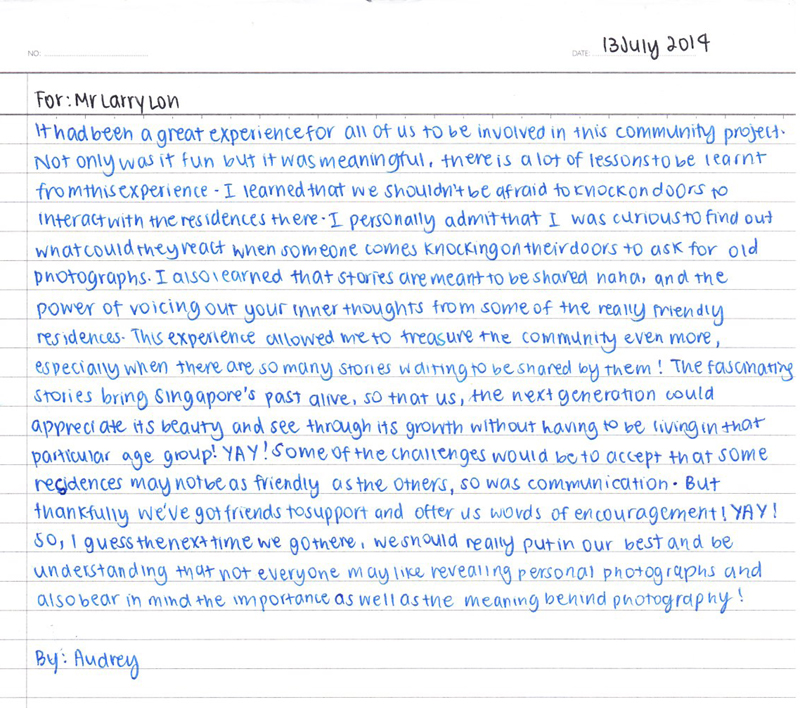 NO:
DATE: 13 July 2014
For: Mr Larry Lon
It had been a great experience for all of us to be involved in this community project.
Not only was it fun but it was meaningful, there is a lot of lessons to be learnt
from this experience. I learned that we shouldn't be afraid to knock on doors to
interact with the residences there. I personally admit that I was curious to find out
what could they react when someone comes knocking on their doors to ask for old
photographs. I also learned that stories are meant to be shared haha, and the
power of voicing out your inner thoughts from some of the really friendly
residences. This experience allowed me to treasure the community even more,
especially when there are so many stories waiting to be shared by them! The fascinating
stories bring Singapore's past alive, so that us, the next generation could
appreciate its beauty and see through its growth without having to be living in that
particular age group! YAY! Some of the challenges would be to accept that some
residences may not be as friendly as the others, so was communication. But
thankfully we've got friends to support and offer us words of encouragement! YAY!
So, I guess the next time we go there, we should really put in our best and be
understanding that not everyone may like revealing personal photographs and
also bear in mind the importance as well as the meaning behind photography!
By: Audrey